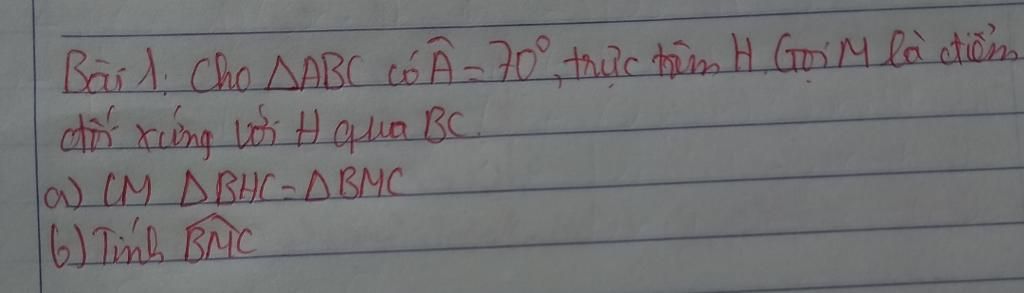 Bài 1. Cho ΔABC có Â = 70°, trực tâm H. Gọi M là điểm
đối xứng với H qua BC.
a) CM ΔBHC = ΔBMC
b) Tính \widehat{BMC}